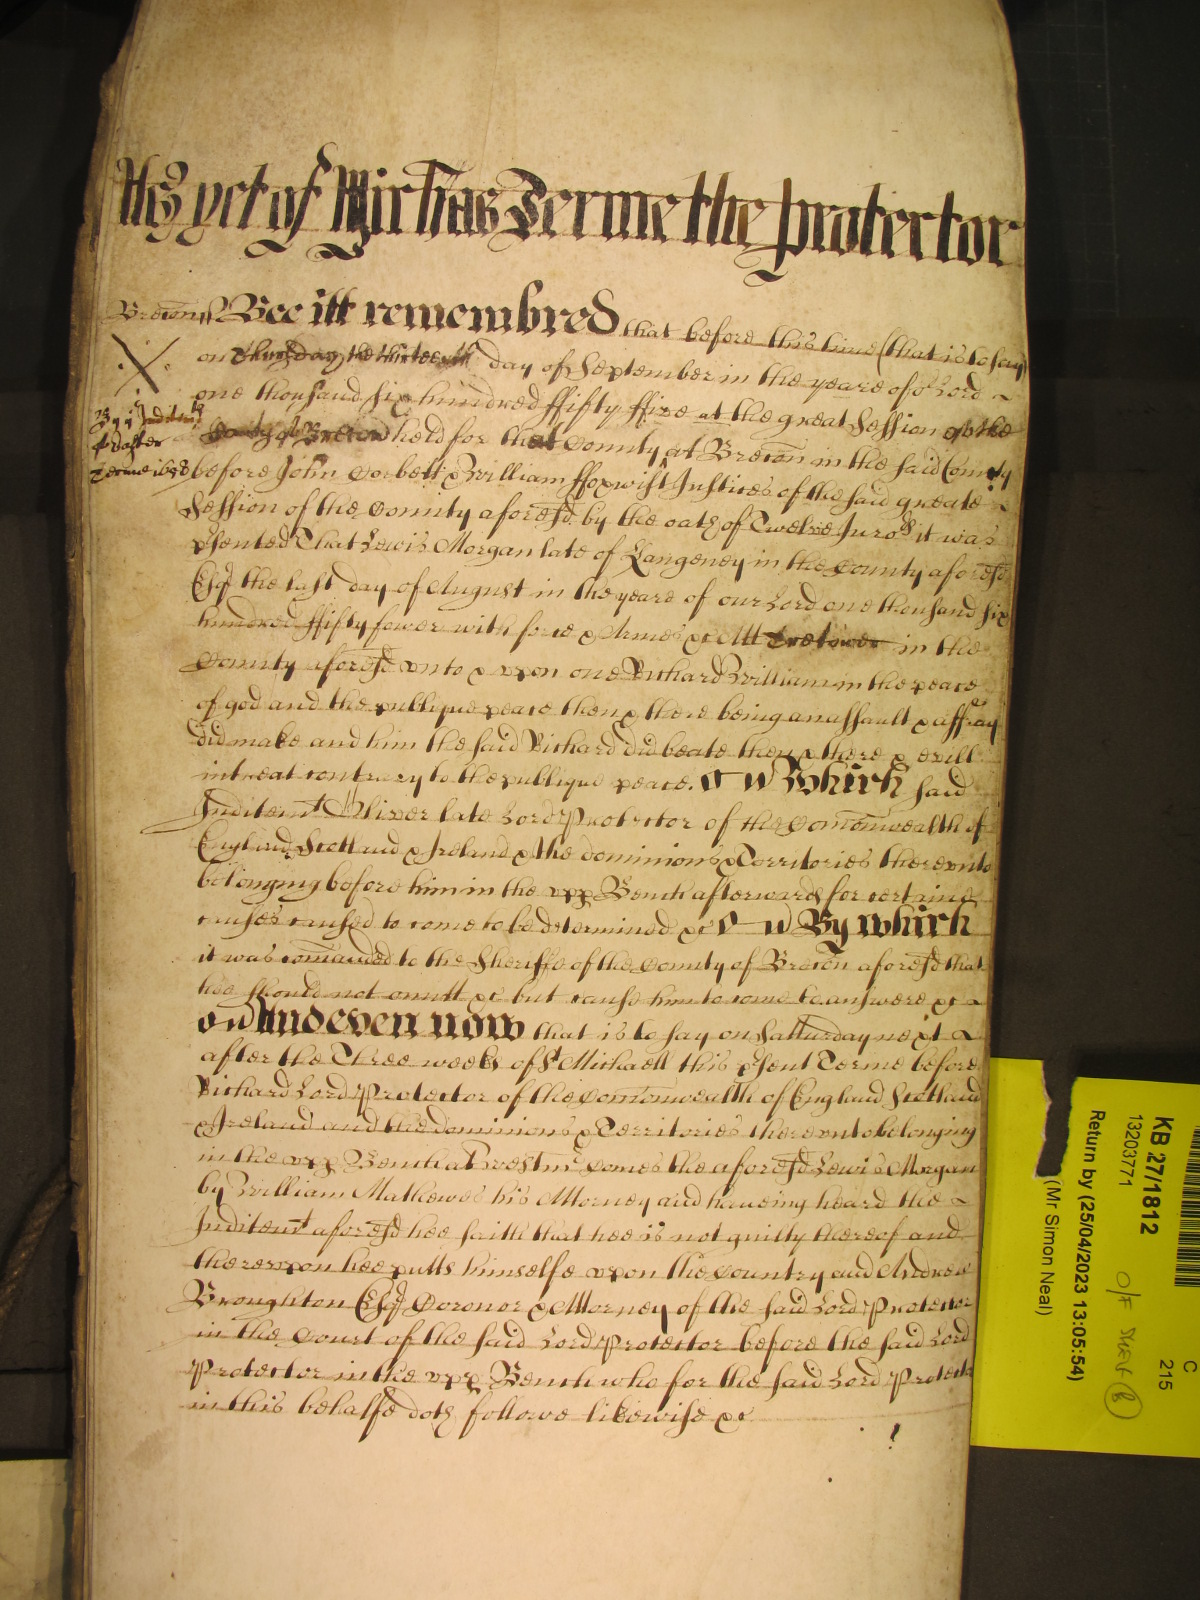 As yet of Michas Terme the Protector
Brecon ss Bee itt remembred that before this time (that is to say)
on Thursday the thirteenth day of September in the yeare of or Lord
one thousand six hundred ffifty ffive at the great Session of the
County of Brecon held for that County at Brecon in the said County
before John Corbett & William ffoxwist Justices of the said greate
Session of the County aforesd by the oath of Twelve Juro's it was
psented That Lewis Morgan late of Llangeney in the County aforesd
Esqr the last day of August in the yeare of our Lord one thousand six
hundred ffifty fower with force & Armes &c Att Tretower in the
County aforesd vnto & vpon one Richard William in the peace
of god and the publique peace then & there being an assault & affray
did make and him the said Richard did beate then & there & evill
intreat contrary to the publique peace. Which said
Inditemt Oliver late Lord Protector of the Comonwealth of
England Scotland & Ireland & the dominions & Territories therevnto
belonging before him in the vpp Bench afterwards for certaine
causes caused to come to be determined &c By which
it was comanded to the Sheriffe of the County of Brecon aforesd that
hee should not omitt &c but cause him to come to answere &c
And even now that is to say on Satturday next
after the Three weeks of St Michaell this psent Terme before
Richard Lord Protector of the Comonwealth of England Scotland
& Ireland and the dominions & Territories therevnto belonging
in the vpp Bench at Westmr Comes the aforesd Lewis Morgan
by William Mathewes his Attorney and haueing heard the
Inditemt aforesd hee saith that hee is not guilty thereof and
therevpon hee putts himselfe vpon the Country and Andrew
Broughton Esqr Coronor & Attorney of the said Lord Protector
in the Court of the said Lord Protector before the said Lord
Protector in the vpp Bench who for the said Lord Protector
in this behalfe doth followe likewise &c
Terme 1658
KB 27/1812
13203771
Return by (25/04/2023 13:05:54)
(Mr Simon Neal)
C
215
O/F Shelf B